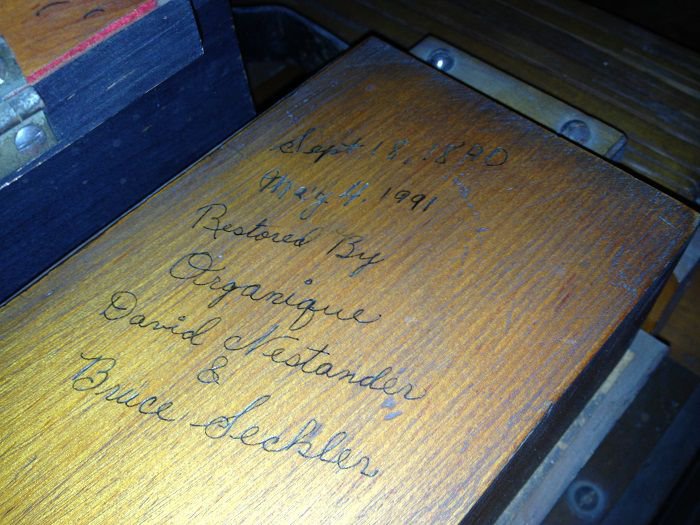 Sept 18, 1890
May 4, 1991
Restored By
Organique
David Nestander
&
Bruce Seckler